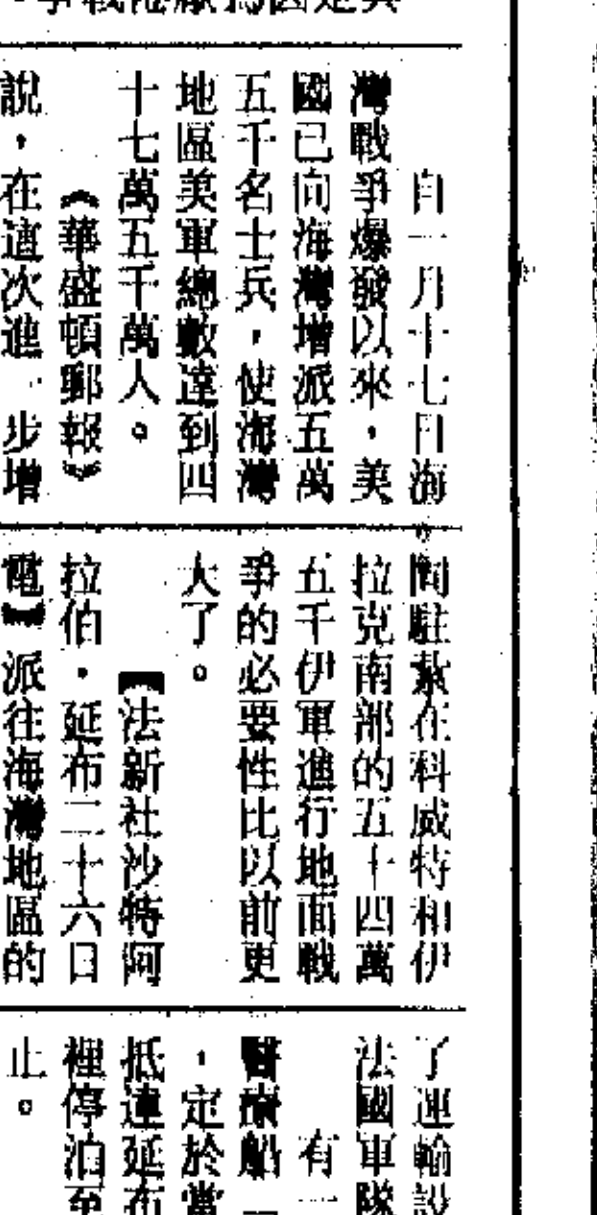 自一月十七日海
灣戰爭爆發以來，美
國已向海灣增派五萬
五千名士兵，使海灣
地區美軍總數達到四
十七萬五千萬人。
《華盛頓郵報》
說，在這次進一步增
對駐紮在科威特和伊
拉克南部的五十四萬
五千伊軍進行地面戰
爭的必要性比以前更
大了。
【法新社沙特阿
拉伯·延布二十六日
電】派往海灣地區的
了運輸設
法國軍隊
有一
醫療船
，定於當
抵達延布
裡停泊至
止。